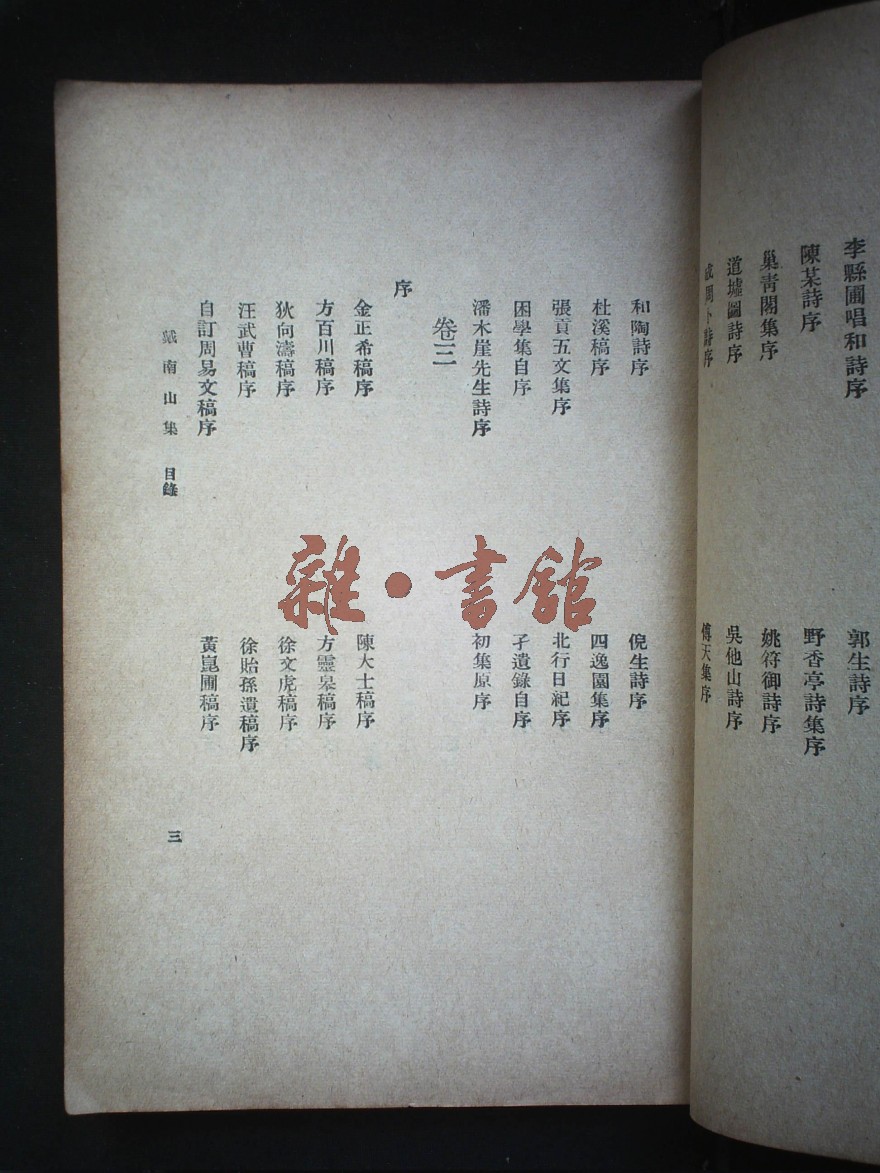 李縣圃唱和詩序
郭生詩序
陳某詩序
野香亭詩集序
巢青閣集序
姚符御詩序
道墟圖詩序
吳他山詩序
成周卜詩序
傅天集序
和陶詩序
倪生詩序
杜溪稿序
四逸園集序
張貢五文集序
北行日紀序
困學集自序
孑遺錄自序
潘木崖先生詩序
初集原序
卷三
序
金正希稿序
陳大士稿序
方百川稿序
方靈皋稿序
狄向濤稿序
徐文虎稿序
汪武曹稿序
徐貽孫遺稿序
自訂周易文稿序
黃崑圃稿序
戴南山集 目錄
三
雜·書館